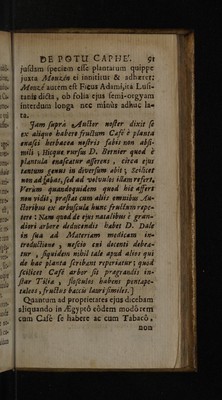 DE POTU CAPHE'. 91
jusdam speciem esse plantarum quippe
juxta Monzèn ei innititur & adhæret:
Monzè autem est Ficus Adami, ita Lusi-
tanis dicta, ob folia ejus semi-orgyam
interdum longa nec minùs adhuc la-
ta.
Jam suprà Auctor noster dixit se
ex aliquo habere fructum Cafè è planta
enasci herbacea nostris fabis non absi-
mili; Hicque rursus D. Bernier quod è
plantula enascatur asserens, circa ejus
tantum genus in diversum abit; Scilicet
non ad fabas, sed ad volvulos illum refert,
Verùm quandoquidem quod hic asserit
non vidit, præstat cum aliis omnibus Au-
ctoribus ex arbuscula hunc fructum repe-
tere: Nam quod de ejus natalibus è gran-
diori arbore deducendis habet D. Dale
in sua ad Materiam medicam in-
troductione, nescio cui docenti debea-
tur, siquidem nihil tale apud alios qui
de hac planta scribant reperiatur; quod
scilicet Cafè arbor sit prægrandis in-
star Tiliæ, flosculis habens pentape-
talois, fructus baccis lauri similes.]
Quantum ad proprietates ejus dicebam
aliquando in Ægyptô eôdem modô rem
cum Cafè se habere ac cum Tabacô,
non